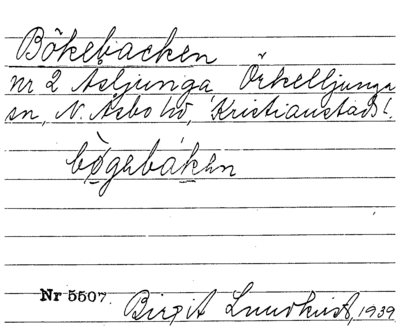 Bökebacken
nr 2 Åsljunga, Örkelljunga
sn, N. Åsbo hd, Kristianstads l.
bø̀gəbákən
Nr 5507
Birgit Lundkvist, 1939